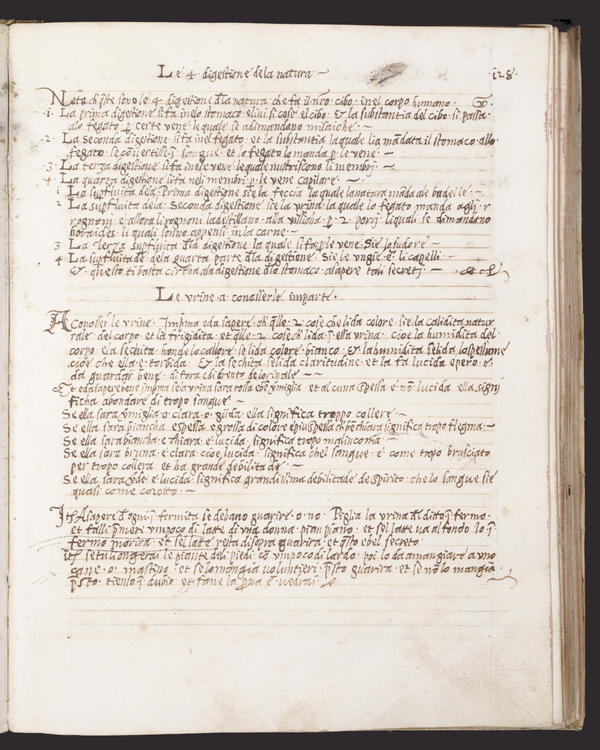 Le 4 digestione dela natura
128
Nota ch qste sono le 4 digestione dla natura che fa il nro cibo inel corpo humano
1. La prima digestione si fa inelo stomaco et ivi si cose el cibo & la substantia del cibo si passa
alo fegato p certe vene lequale se adimandano misaiche
2. La seconda digestione si fa inel fegato et la substantia la quale lia mādata il stomaco allo
fegato se cōvertisse ī songue et lo fegato lo manda p le vene
3 La terza digestione si fa inele vene lequale nutriscono li membrj
4 La quarta digestione si fa neli membrj p le vene capilare
1 La supfluita dela Prima digestione sie la feccia la quale la natura māda ale badelle
2 La supfluita dela Seconda digestione sie la vrina la quale lo fegato manda agli r
rognonj e allora li rognoni la destillano alla vissicha p 2 porrj li quali se dimandano
li quali sonno appensi in la carne
3 La Terza supfluita dla digestione la quale si fa p le vene Sie lo sudore
4 La supfluita dela quarta parte dla digestione Sie le vngie e li capelli
& questo ti basta circha ala digestione dlo stomaco a sapere tali secretj
Le vrine a conosserle imparte
A Conosser le vrine Imprima e da sapere ch qlle 2 cose che li da colore sie la calidita natur
rale del corpo et la frigidita et qlle 2 cose ch li da ī essa vrina cioe la humidita del
corpo e la sechita honde lo callore se li da colore bianco & la humidita se li da
cioe che ella e torbida & la sechita se li da claritudine et la fa lucida epero e
da guardar bene di
Et e da sapere
ficha abondare di tropo songue
Se ella sara vmiglia o clara o gialda ella significa troppo collere
Se ella sara biancha e spessa e grossa di colore e piu spessa ch pocho chiara significa tropo flegma
Se ella sara biancha e chiara e lucida significa tropo malinconia
Se ella sara bruna e clara cioe lucida significa chel songue e come tropo brusciato
per tropo collera et ha grande debilita de
Se ella sara vde e lucida significa grandissima debilitade de spirito che lo sangue sie
quasi come corotto
Itē A sapere d ognj ī fermita se debano guarire o no Piglia la vrina dl dicto ī fermo
et falli pīvere vn poco di latte di vna donna pian piano et se l latte va al fondo lo ī
fermo morira et se l latte resta di sopra guarira et qsto e bel secreto
Itē se tu longerai le piante deli piedi cō vn poco di lardo poi lo da a mangiare a vno
cane o mastino et se lo mangia voluntieri psto guarira et se nō lo mangia
psto tienlo ī dubio et fane la pua e vedrai